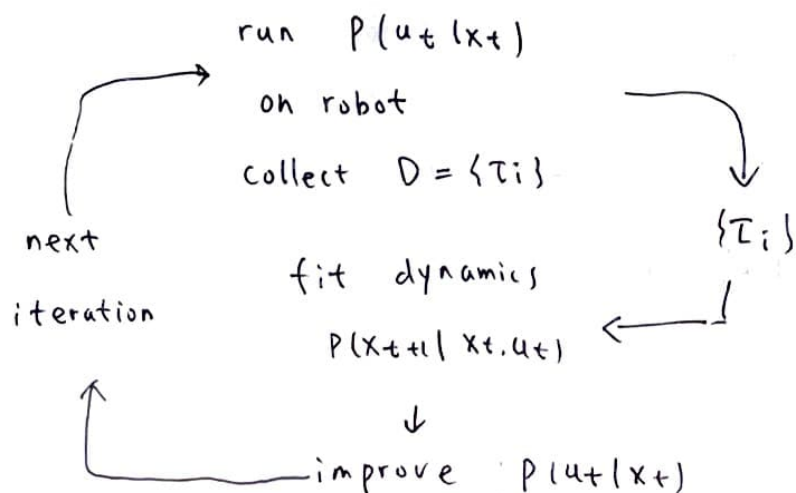 run P(ut|xt)
on robot
collect D = {τi}
{τi}
next
iteration
fit dynamics
P(xt+1|xt.ut)
↓
improve P(ut|xt)